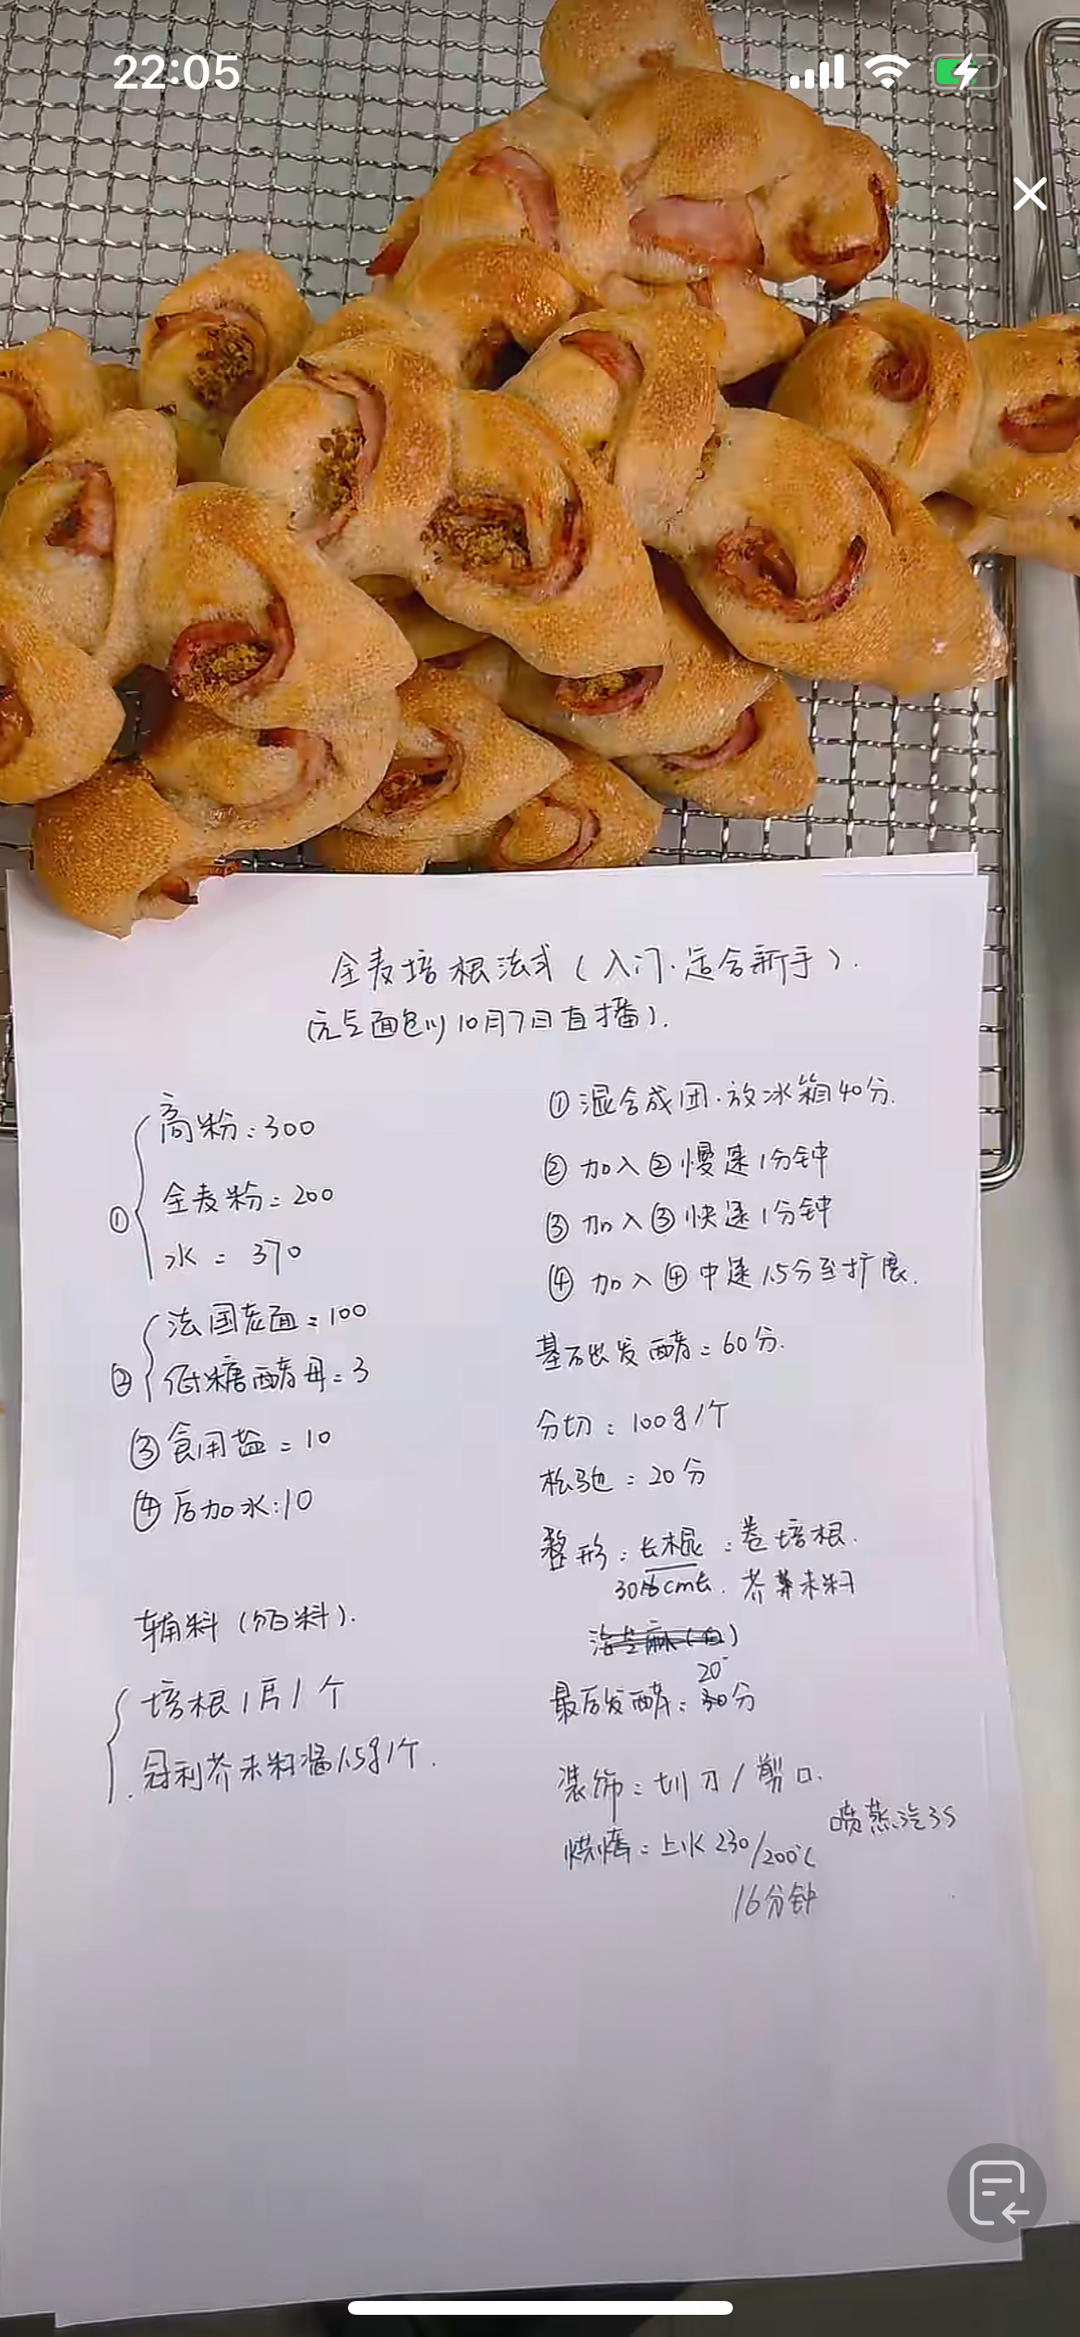 22:05
全麦培根法式(入门·适合新手).
(元气面包川10月7日直播).
① 高粉:300
全麦粉=200
水=370
② 法国老面=100
低糖酵母=3
③食用盐=10
④后加水:10
辅料(馅料).
培根1片/个
冠利芥末籽酱15g/个.
①混合成团·放冰箱40分.
②加入②慢速1分钟
③加入③快速1分钟
④加入④中速1.5分至扩展.
基础发酵=60分.
分切:100g/个
松弛:20分
整形:长棍:卷培根.
cm长.芥末籽
20
最后发酵:分
装饰:切刀/剪口.
喷蒸汽3S
烘烤:上火230/200℃
16分钟